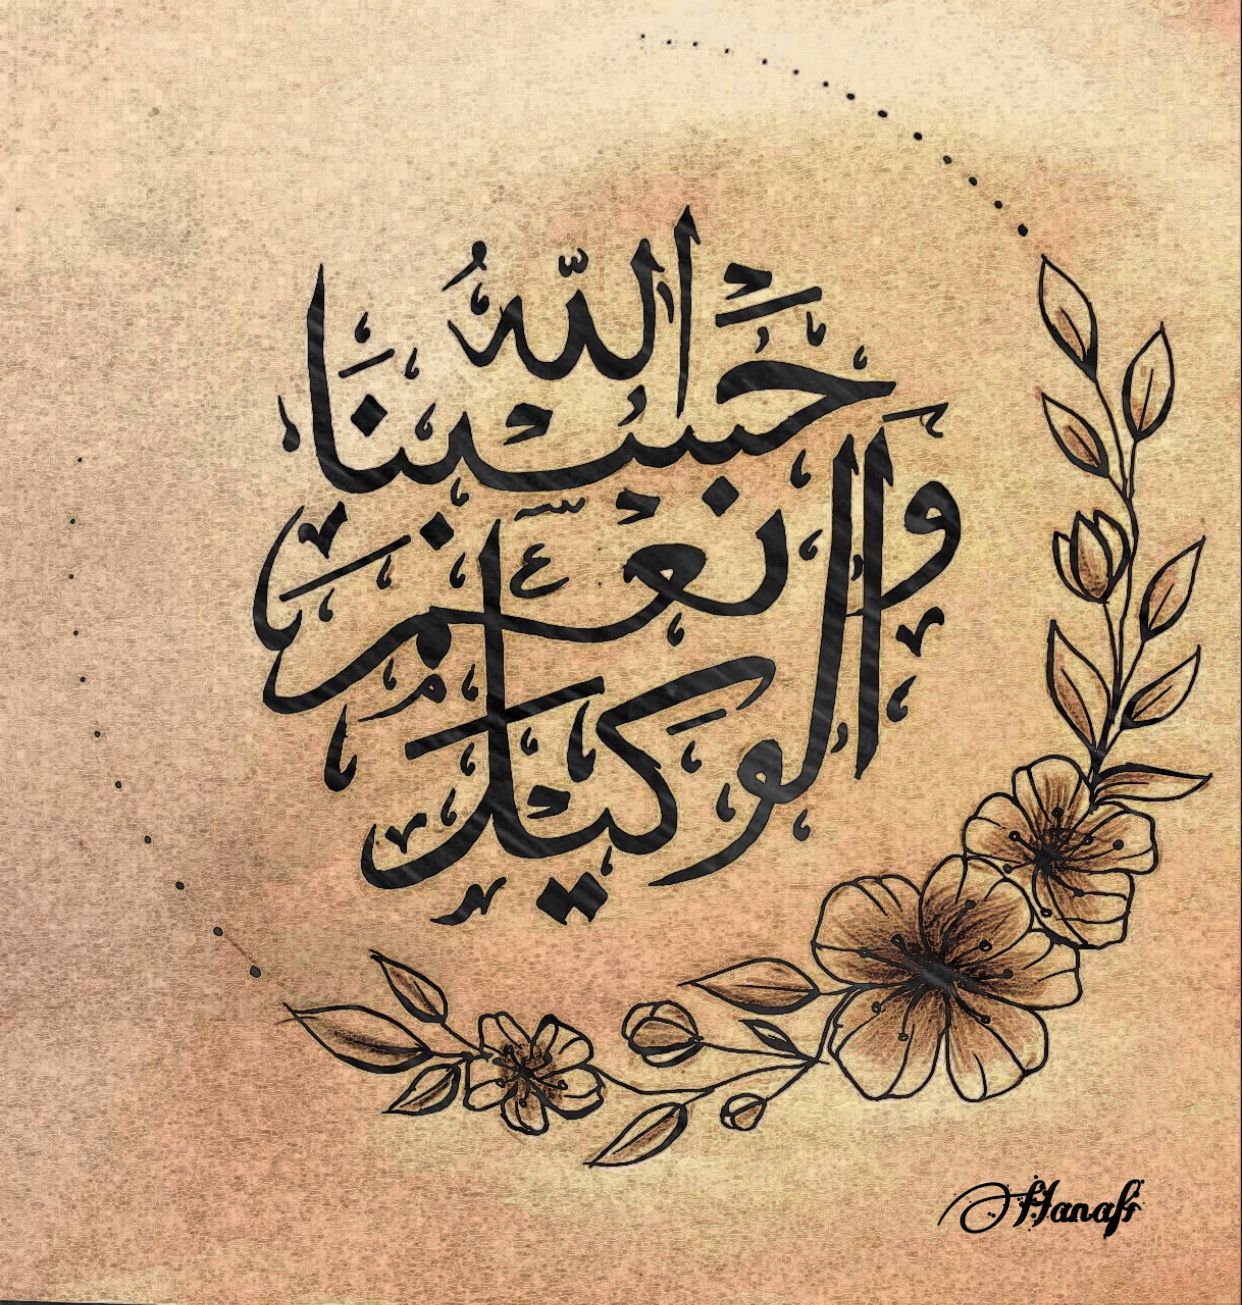 حَسْبُنَا اللّٰهُ
وَنِعْمَ
الْوَكِيلُ
Hanafi